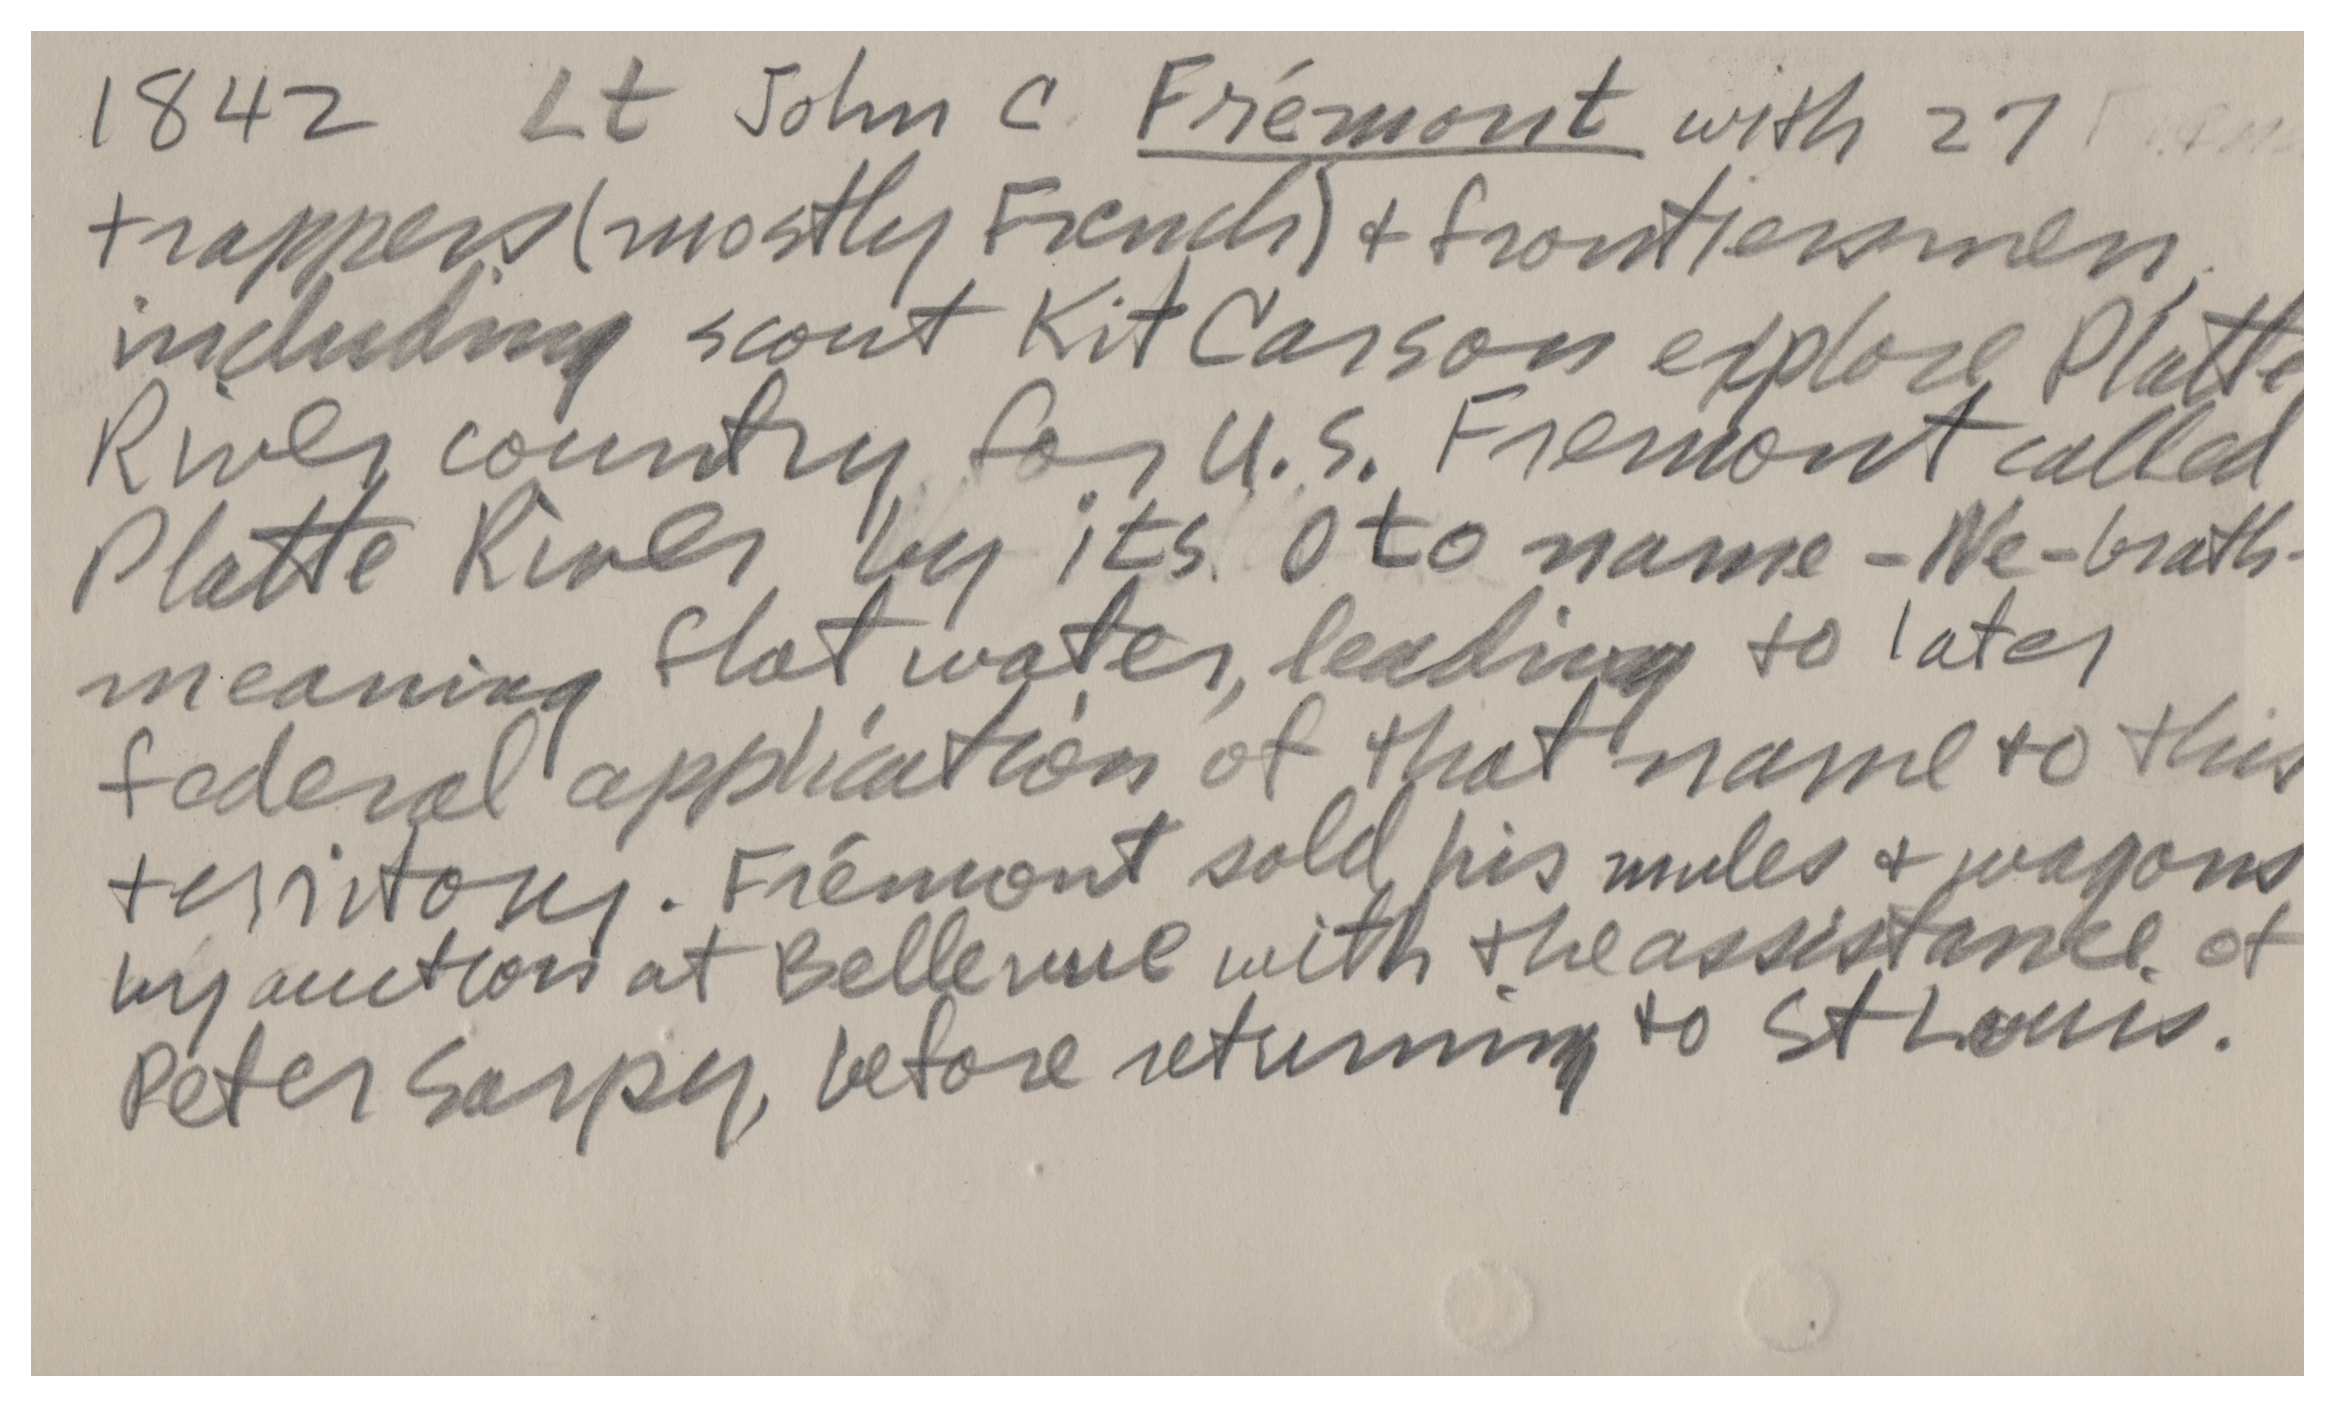 1842 Lt John C. Frémont with 27
trappers (mostly French) + frontiersmen,
including scout Kit Carson explore Platte
River country for U.S. Fremont called
Platte River by its Oto name - Ne-brath-
meaning flat water, leading to later
federal application of that name to this
territory. Frémont sold his mules + wagons
by auction at Bellevue with the assistance of
Peter Sarpy, before returning to St Louis.